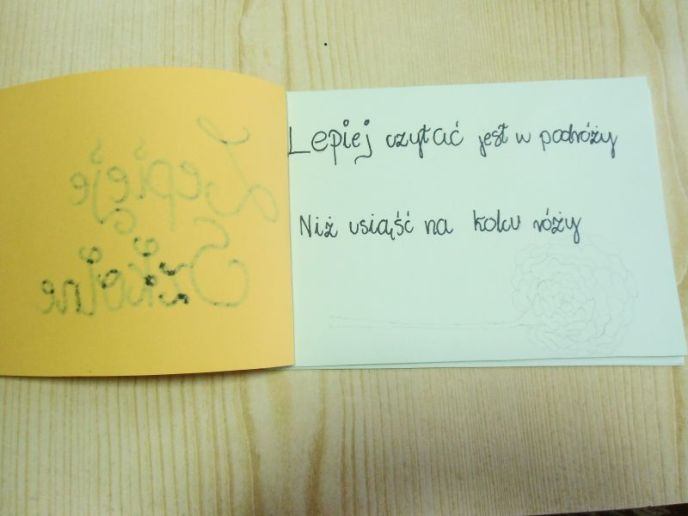 Lepieje
Szkolne
Lepiej czytać jest w podróży
Niż usiąść na kolcu róży